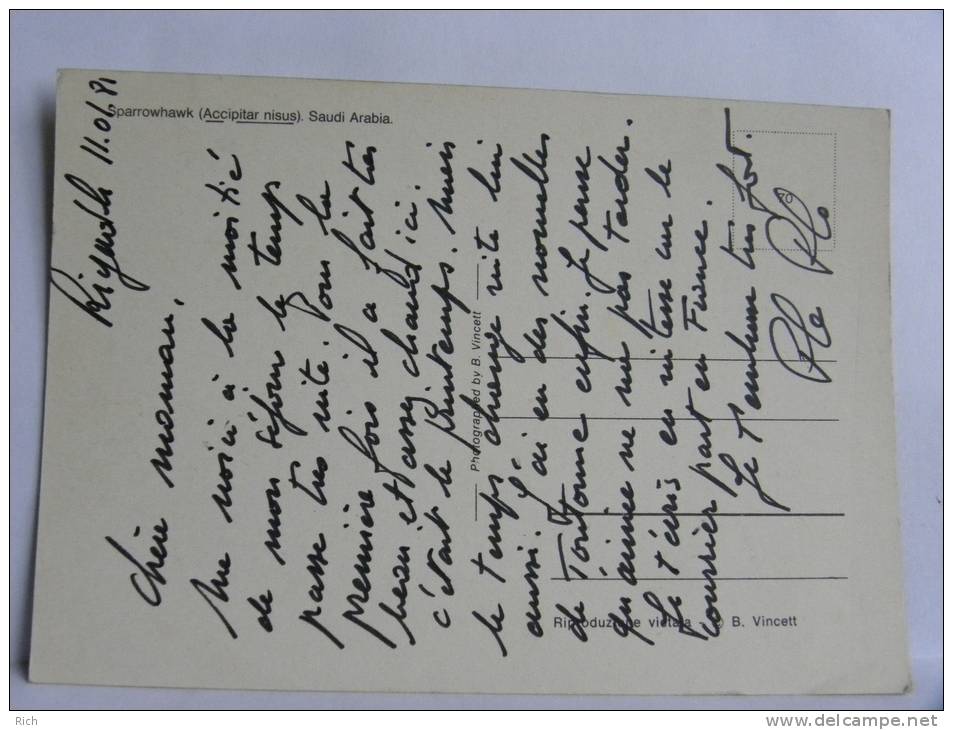 Sparrowhawk (Accipitar nisus). Saudi Arabia.
Riyadh 11.01.81
Chère maman,
Me voici à la moitié
de mon séjour le temps
passe très vite. Pour la
première fois il a fait très
beau et assez chaud ici.
c'était le Printemps. mais
le temps change vite lui
aussi. J'ai eu des nouvelles
de Toutoune enfin. Je pense
qu'aimée ne va pas tarder.
Je t'écris en vitesse car le
courrier part en France.
Je t'embrasse très fort.
Photographed by B. Vincett
Riproduzione vietata - © B. Vincett
70
Rich
www.delcampe.net